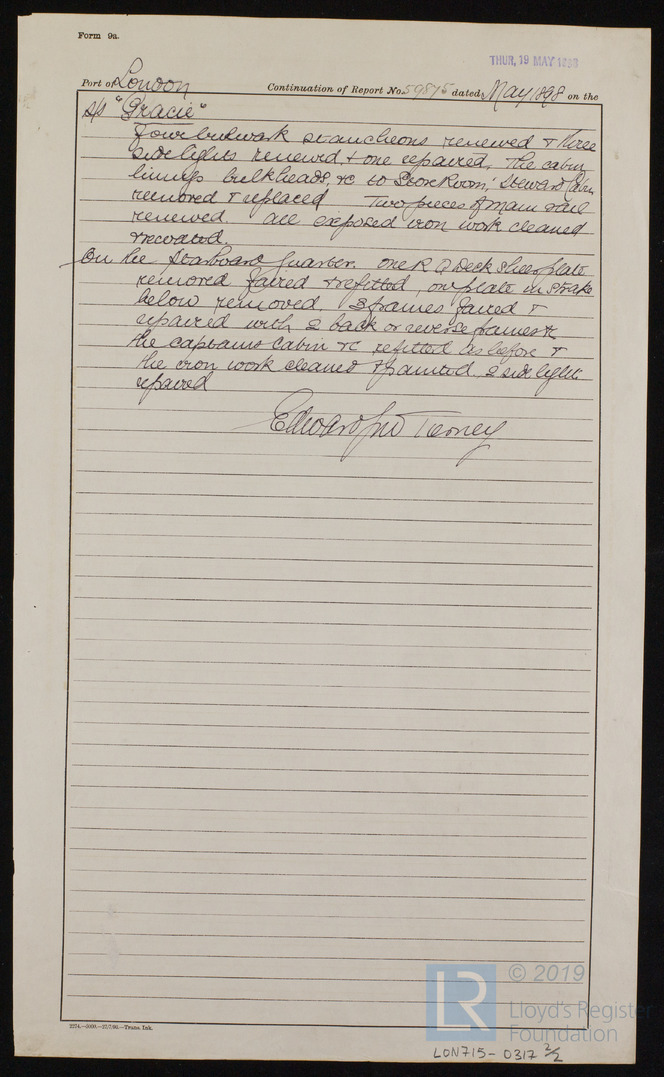 Form 9a.
THUR, 19 MAY 1898
Port of London Continuation of Report No. 59875 dated May 1898 on the
s/s "Gracie"
Four bulwark stancheons renewed & three
side lights renewed, & one repaired, The cabin
linings bulkheads, &c to Store Room, Steward Cabin
removed & replaced. Two pieces of main rail
renewed. all exposed iron work cleaned
& recoated.
On the Starboard Quarter. one R Q Deck sheer plate
removed faired & refitted, one plate in strake
below removed. 3 frames faired &
repaired with 2 back or reverse frames &c
the captains cabin &c refitted as before &
the iron work cleaned & painted 2 side lights
repaired
Edward Tierney
2274.—5000.—27/7/96.—Trans. Ink.
LR © 2019
Lloyd's Register
Foundation
LON715-0317 2/2